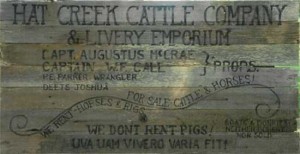 HAT CREEK CATTLE COMPANY
& LIVERY EMPORIUM
CAPT. AUGUSTUS McCRAE
CAPTAIN W CALL
} PROPS.
P.E. PARKER WRANGLER
DEETS, JOSHUA
FOR SALE: CATTLE & HORSES!
WE RENT HORSES & RIGS
GOATS & DONKEYS
NEITHER BOUGHT
NOR SOLD
WE DON'T RENT PIGS!
UVA UAM VIVERO VARIA FIT!